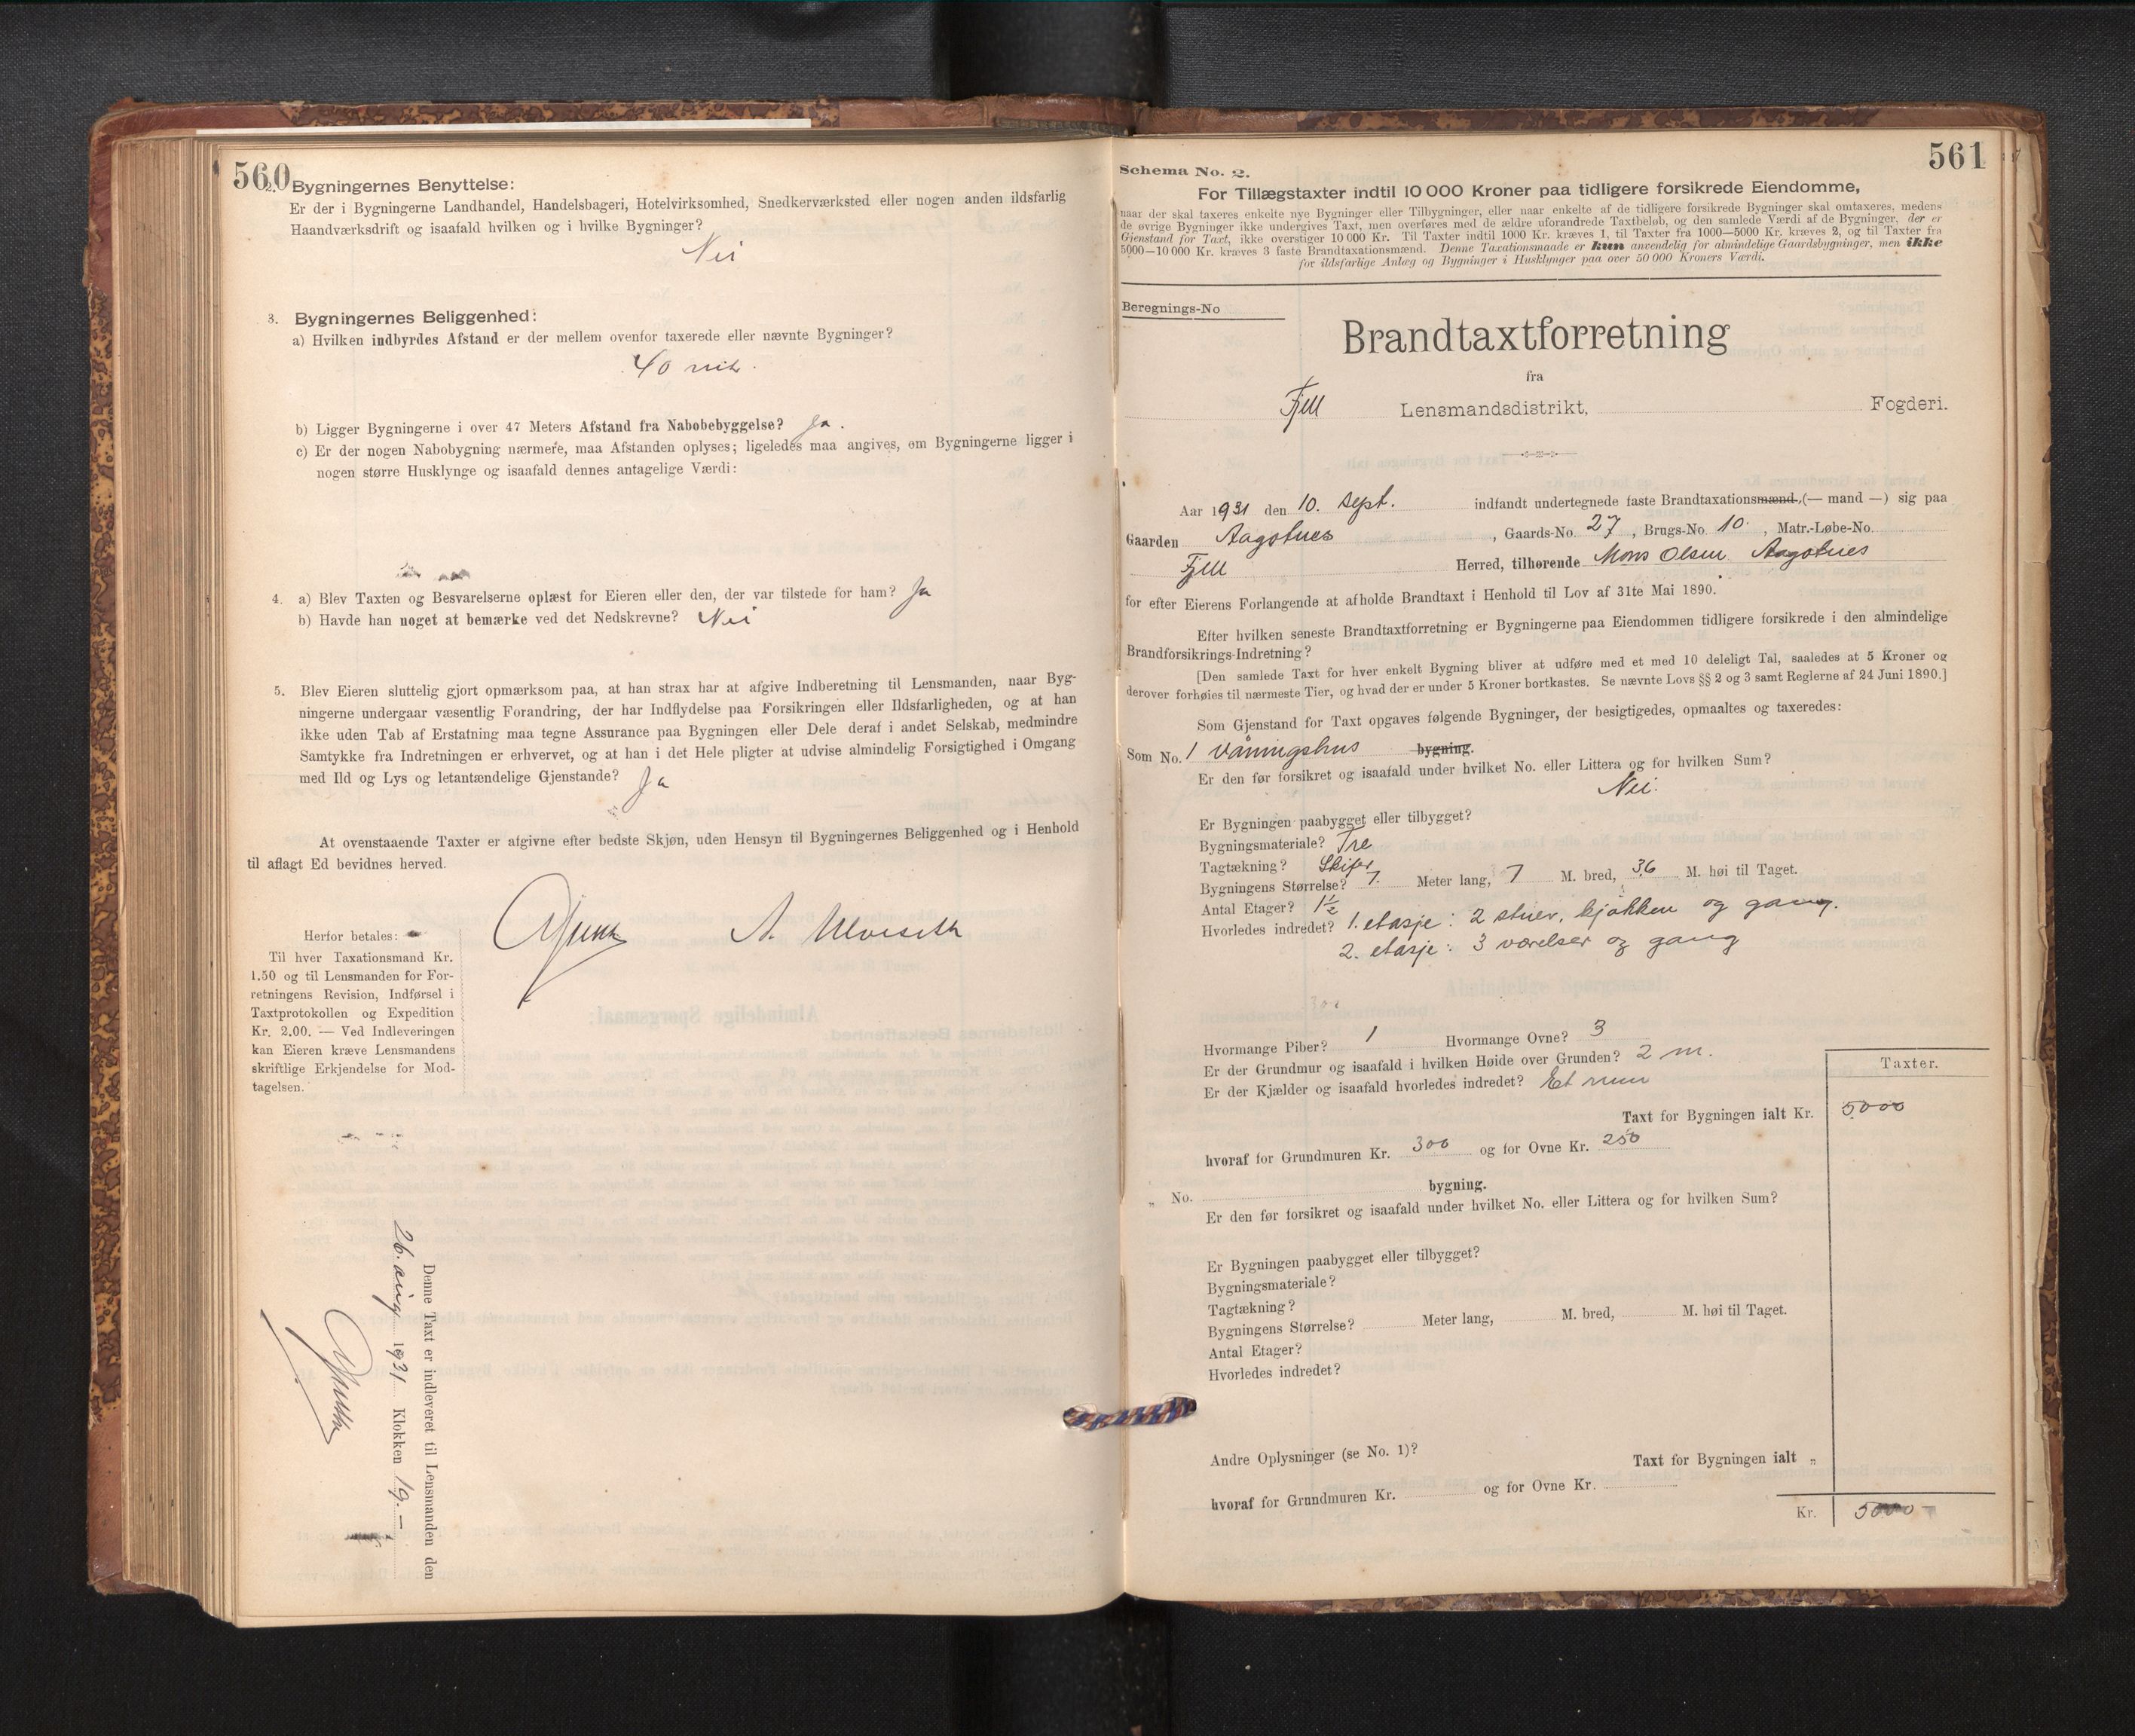 560
2. Bygningernes Benyttelse:
Er der i Bygningerne Landhandel, Handelsbageri, Hotelvirksomhed, Snedkerværksted eller nogen anden ildsfarlig
Haandværksdrift og isaafald hvilken og i hvilke Bygninger?
Nei
3. Bygningernes Beliggenhed:
a) Hvilken indbyrdes Afstand er der mellem ovenfor taxerede eller nævnte Bygninger?
40 mtr.
b) Ligger Bygningerne i over 47 Meters Afstand fra Nabobebyggelse? Ja.
c) Er der nogen Nabobygning nærmere, maa Afstanden oplyses; ligeledes maa angives, om Bygningerne ligger i
nogen større Husklynge og isaafald dennes antagelige Værdi:
4. a) Blev Taxten og Besvarelserne oplæst for Eieren eller den, der var tilstede for ham? Ja
b) Havde han noget at bemærke ved det Nedskrevne? Nei
5. Blev Eieren sluttelig gjort opmærksom paa, at han strax har at afgive Indberetning til Lensmanden, naar Byg-
ningerne undergaar væsentlig Forandring, der har Indflydelse paa Forsikringen eller Ildsfarligheden, og at han
ikke uden Tab af Erstatning maa tegne Assurance paa Bygningen eller Dele deraf i andet Selskab, medmindre
Samtykke fra Indretningen er erhvervet, og at han i det Hele pligter at udvise almindelig Forsigtighed i Omgang
med Ild og Lys og letantændelige Gjenstande? Ja
At ovenstaaende Taxter er afgivne efter bedste Skjøn, uden Hensyn til Bygningernes Beliggenhed og i Henhold
til aflagt Ed bevidnes herved.
A. Ulveseth
Herfor betales:
Til hver Taxationsmand Kr.
1.50 og til Lensmanden for For-
retningens Revision, Indførsel i
Taxtprotokollen og Expedition
Kr. 2.00. — Ved Indleveringen
kan Eieren kræve Lensmandens
skriftlige Erkjendelse for Mod-
tagelsen.
Denne Taxt er indleveret til Lensmanden den
26. aug 1931 Klokken 19.-
561
Schema No. 2.
For Tillægstaxter indtil 10 000 Kroner paa tidligere forsikrede Eiendomme,
naar der skal taxeres enkelte nye Bygninger eller Tilbygninger, eller naar enkelte af de tidligere forsikrede Bygninger skal omtaxeres, medens
de øvrige Bygninger ikke undergives Taxt, men overføres med de ældre uforandrede Taxtbeløb, og den samlede Værdi af de Bygninger, der er
Gjenstand for Taxt, ikke overstiger 10 000 Kr. Til Taxter indtil 1000 Kr. kræves 1, til Taxter fra 1000—5000 Kr. kræves 2, og til Taxter fra
5000—10 000 Kr. kræves 3 faste Brandtaxationsmænd. Denne Taxationsmaade er kun anvendelig for almindelige Gaardsbygninger, men ikke
for ildsfarlige Anlæg og Bygninger i Husklynger paa over 50 000 Kroners Værdi.
Beregnings-No
Brandtaxtforretning
fra
Fjell Lensmandsdistrikt, Fogderi.
Aar 1931 den 10. sept. indfandt undertegnede faste Brandtaxationsmænd (— mand —) sig paa
Gaarden Aagotnes, Gaards-No. 27, Brugs-No 10., Matr.-Løbe-No.
Fjell Herred, tilhørende Mons Olsen Aagotnes
for efter Eierens Forlangende at afholde Brandtaxt i Henhold til Lov af 31te Mai 1890.
Efter hvilken seneste Brandtaxtforretning er Bygningerne paa Eiendommen tidligere forsikrede i den almindelige
Brandforsikrings-Indretning?
[Den samlede Taxt for hver enkelt Bygning bliver at udføre med et med 10 deleligt Tal, saaledes at 5 Kroner og
derover forhøies til nærmeste Tier, og hvad der er under 5 Kroner bortkastes. Se nævnte Lovs §§ 2 og 3 samt Reglerne af 24 Juni 1890.]
Som Gjenstand for Taxt opgaves følgende Bygninger, der besigtigedes, opmaaltes og taxeredes:
Som No. 1 Våningshus bygning.
Er den før forsikret og isaafald under hvilket No. eller Littera og for hvilken Sum?
Nei.
Er Bygningen paabygget eller tilbygget?
Bygningsmateriale? Tre
Tagtækning? Skifer
Bygningens Størrelse? 7. Meter lang, 7 M. bred, 3,6 M. høi til Taget.
Antal Etager? 1½
Hvorledes indredet? 1. etasje: 2 stuer, kjøkken og gang.
2. etasje: 3 værelser og gang
300
Hvormange Piber? 1 Hvormange Ovne? 3
Er der Grundmur og isaafald i hvilken Høide over Grunden? 2 m.
Er der Kjælder og isaafald hvorledes indredet? Et rum
Taxter.
Taxt for Bygningen ialt Kr. 5000
hvoraf for Grundmuren Kr. 300 og for Ovne Kr. 250
„ No. bygning.
Er den før forsikret og isaafald under hvilket No. eller Littera og for hvilken Sum?
Er Bygningen paabygget eller tilbygget?
Bygningsmateriale?
Tagtækning?
Bygningens Størrelse? Meter lang, M. bred, M. høi til Taget.
Antal Etager?
Hvorledes indredet?
Andre Oplysninger (se No. 1)? Taxt for Bygningen ialt „
hvoraf for Grundmuren Kr. og for Ovne Kr.
Kr. 5000